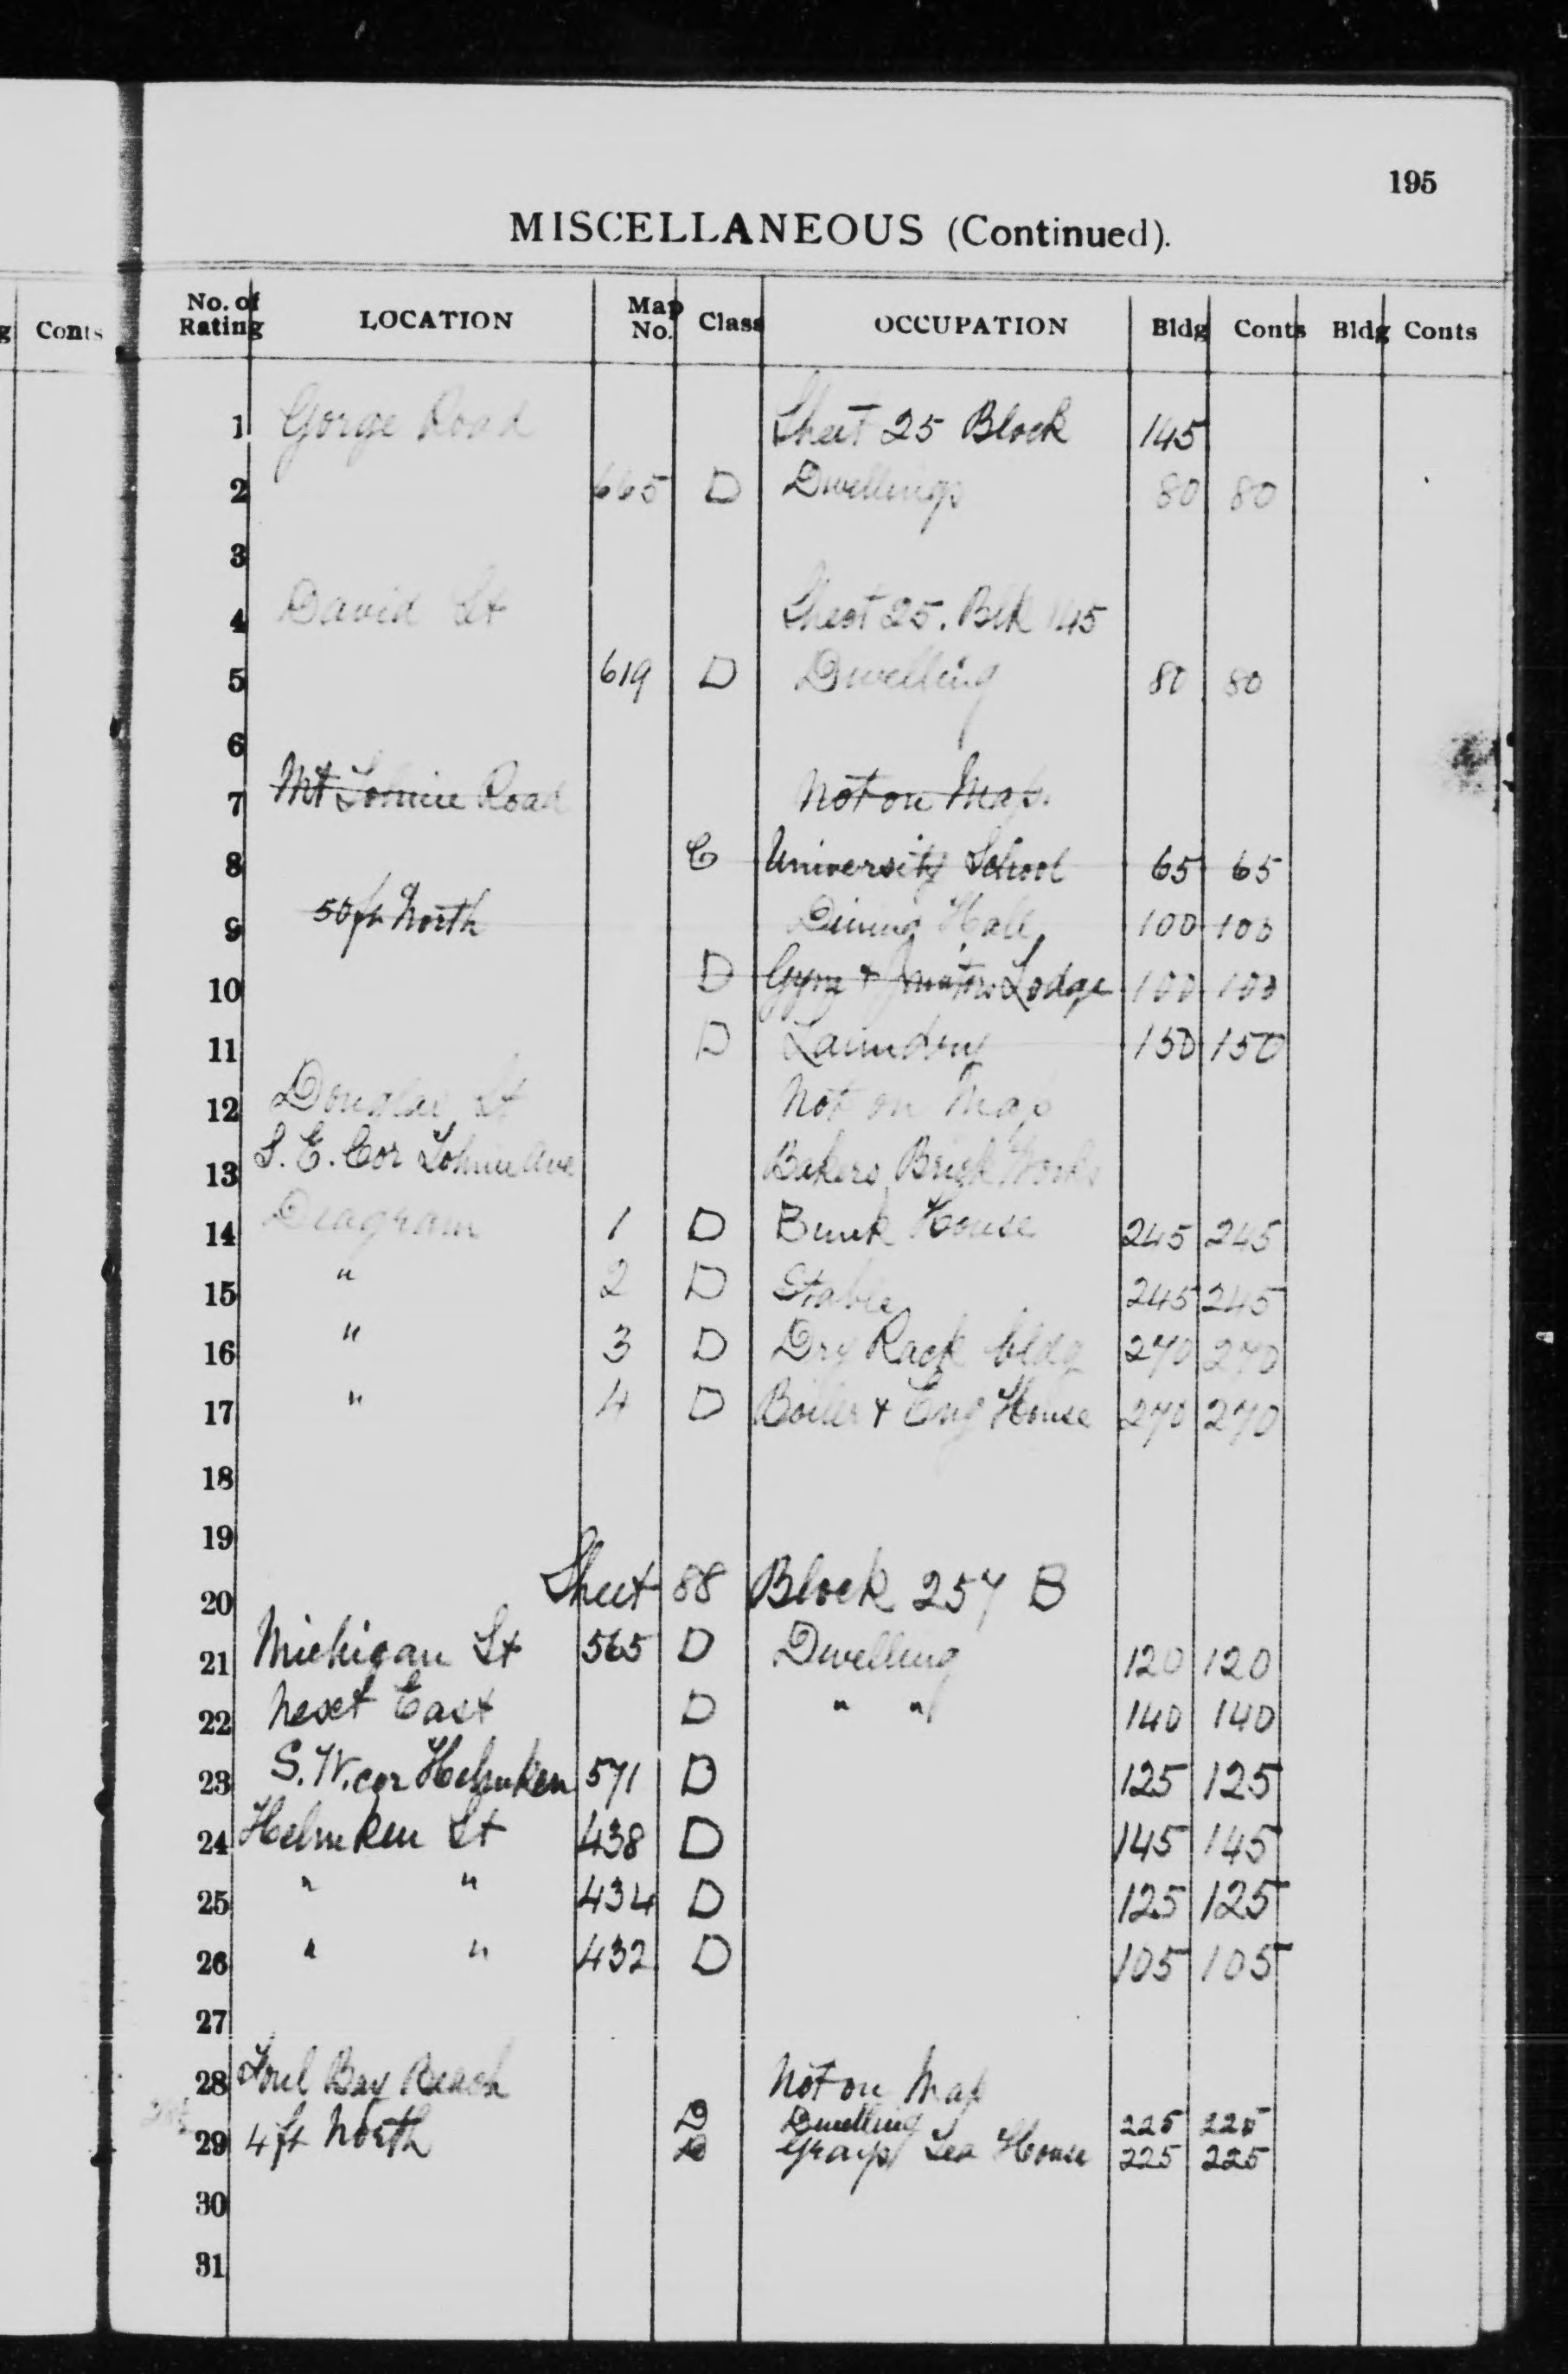 195
MISCELLANEOUS (Continued).
Conts
No. of Rating LOCATION Map No. Class OCCUPATION Bldg Conts Bldg Conts
1 Gorge Road Sheet 25 Block 145
2 665 D Dwellings 80 80
3
4 David St Sheet 25. Blk 145
5 619 D Dwelling 80 80
6
7 Mt Tolmie Road Not on Map.
8 C University School 65 65
9 50 ft North Dining Hall 100 100
10 D Gym & Janitors Lodge 100 100
11 D Laundry 150 150
12 Douglas St Not on Map
13 S. E. Cor Tolmie Ave Bakers Brick Works
14 Diagram 1 D Bunk House 245 245
15 " 2 D Stable 245 245
16 " 3 D Dry Rack bldg 270 270
17 " 4 D Boiler & Eng House 270 270
18
19
20 Sheet 88 Block 257 B
21 Michigan St 565 D Dwelling 120 120
22 Next East D " " 140 140
23 S. W. cor Helmken 571 D 125 125
24 Helmken St 438 D 145 145
25 " " 434 D 125 125
26 " " 432 D 105 105
27
28 Foul Bay Beach Not on Map
D Dwelling 225 225
29 4 ft North D Grays Tea House 225 225
30
31